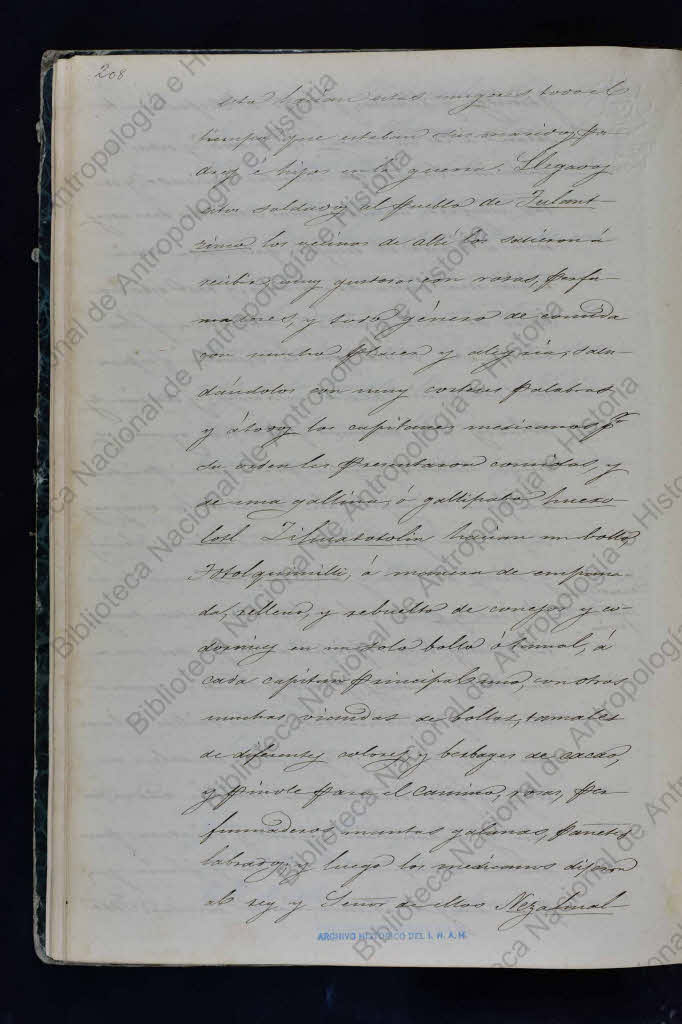 208
esto hacian estas mugeres todo el
tiempo que estaban sus maridos, Pa-
dres é hijos en la guerra. Llegados
estos soldados al Pueblo de Tulant-
zinco los vecinos de allí los salieron á
recibir, muy gustosos con rosas, perfu-
madores, y todo género de comida
con mucho placer y alegria, salu-
dándolos con muy corteses palabras
y á todos los capitanes mexicanos pr
su orden les presentaron comidas, y
de una gallina, ó gallipabo huexo-
lotl Zihuatotolin hacian un bollo,
Totolquimilli, á manera de empana-
da, relleno, y rebuelto de conejos y co-
dornices en un solo bollo ó tamal, á
cada capitan Principal uno, con otras
muchas viandas de bollos, tamales
de diferentes colores, y berbages de cacao,
y pinole para el camino, rosas, per
fumaderos, mantas galanas, pañetes
labrados; y luego los mexicanos dijeron
al rey y Señor de ellos
ARCHIVO HISTORICO DEL I. N. A. H.
Biblioteca Nacional de Antropología e Historia